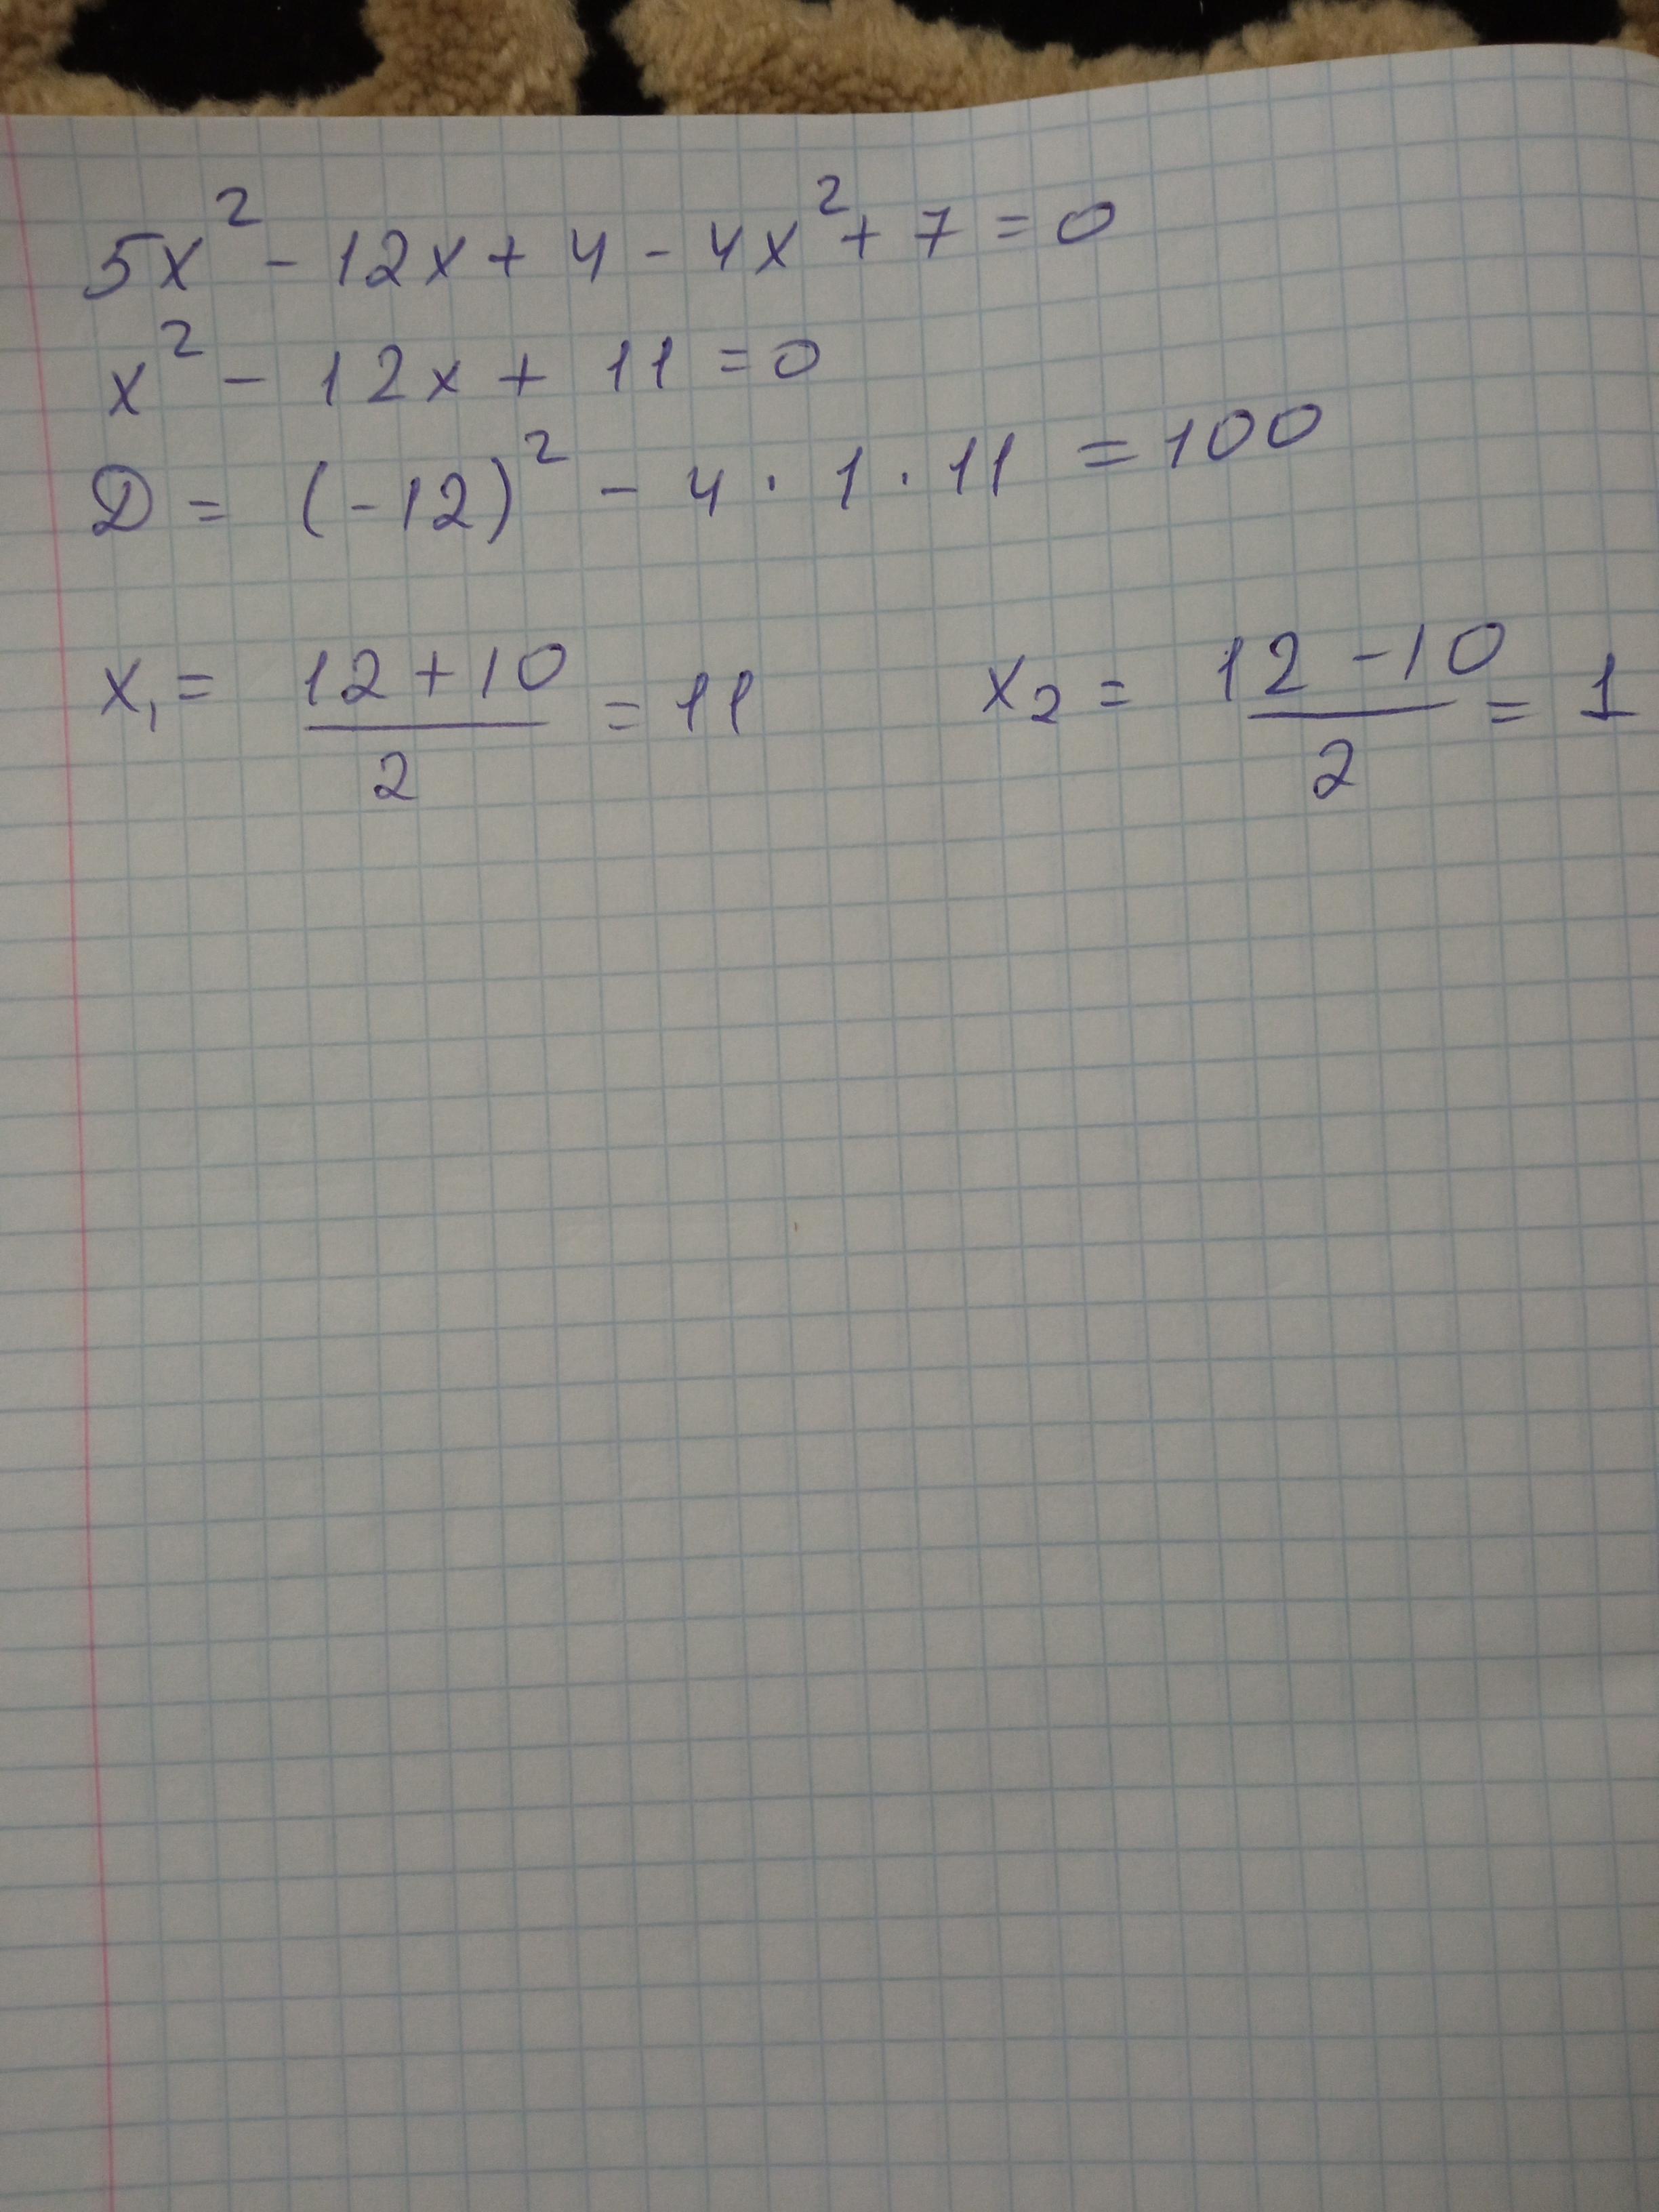 5x² - 12x + 4 - 4x² + 7 = 0
x² - 12x + 11 = 0
D = (-12)² - 4 · 1 · 11 = 100
x₁ = (12 + 10)/2 = 11    x₂ = (12 - 10)/2 = 1